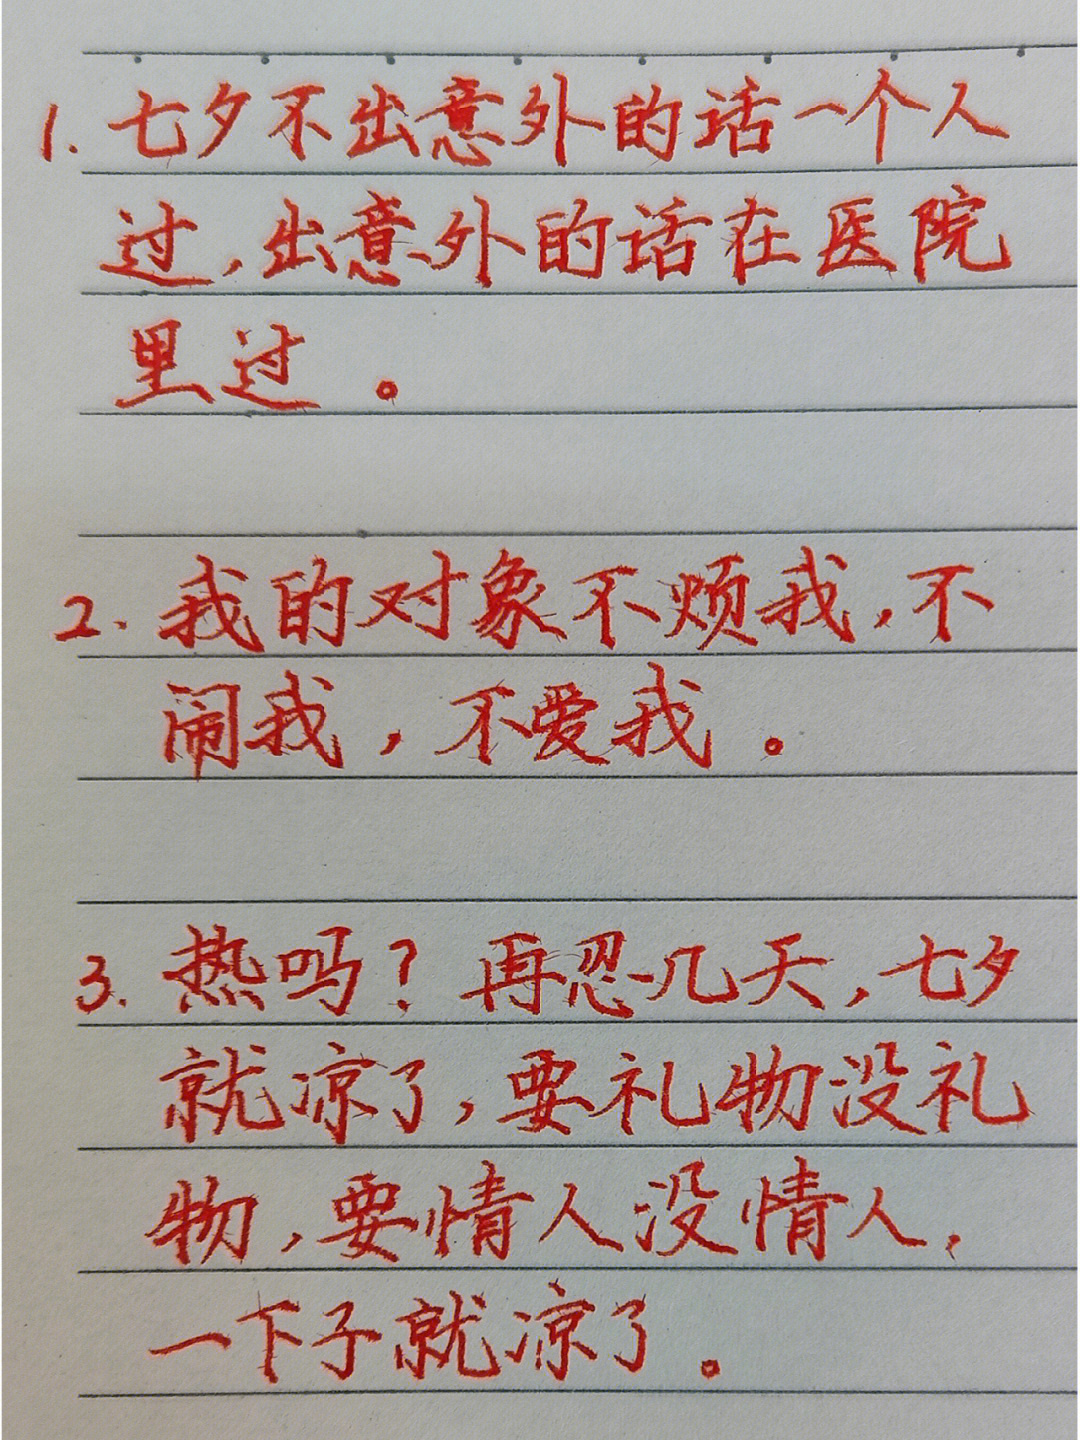 1. 七夕不出意外的话一个人
过,出意外的话在医院
里过。
2. 我的对象不烦我,不
闹我,不爱我。
3. 热吗?再忍几天,七夕
就凉了,要礼物没礼
物,要情人没情人,
一下子就凉了。